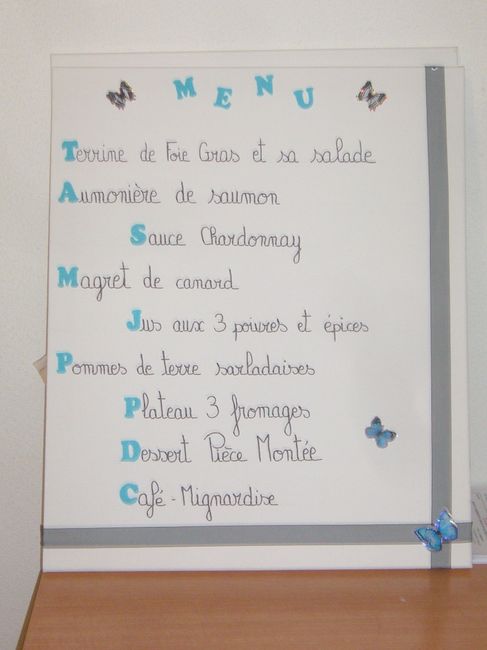 MENU
Terrine de Foie Gras et sa salade
Aumonière de saumon
Sauce Chardonnay
Magret de canard
Jus aux 3 poivres et épices
Pommes de terre sarladaises
Plateau 3 fromages
Dessert Pièce Montée
Café - Mignardise